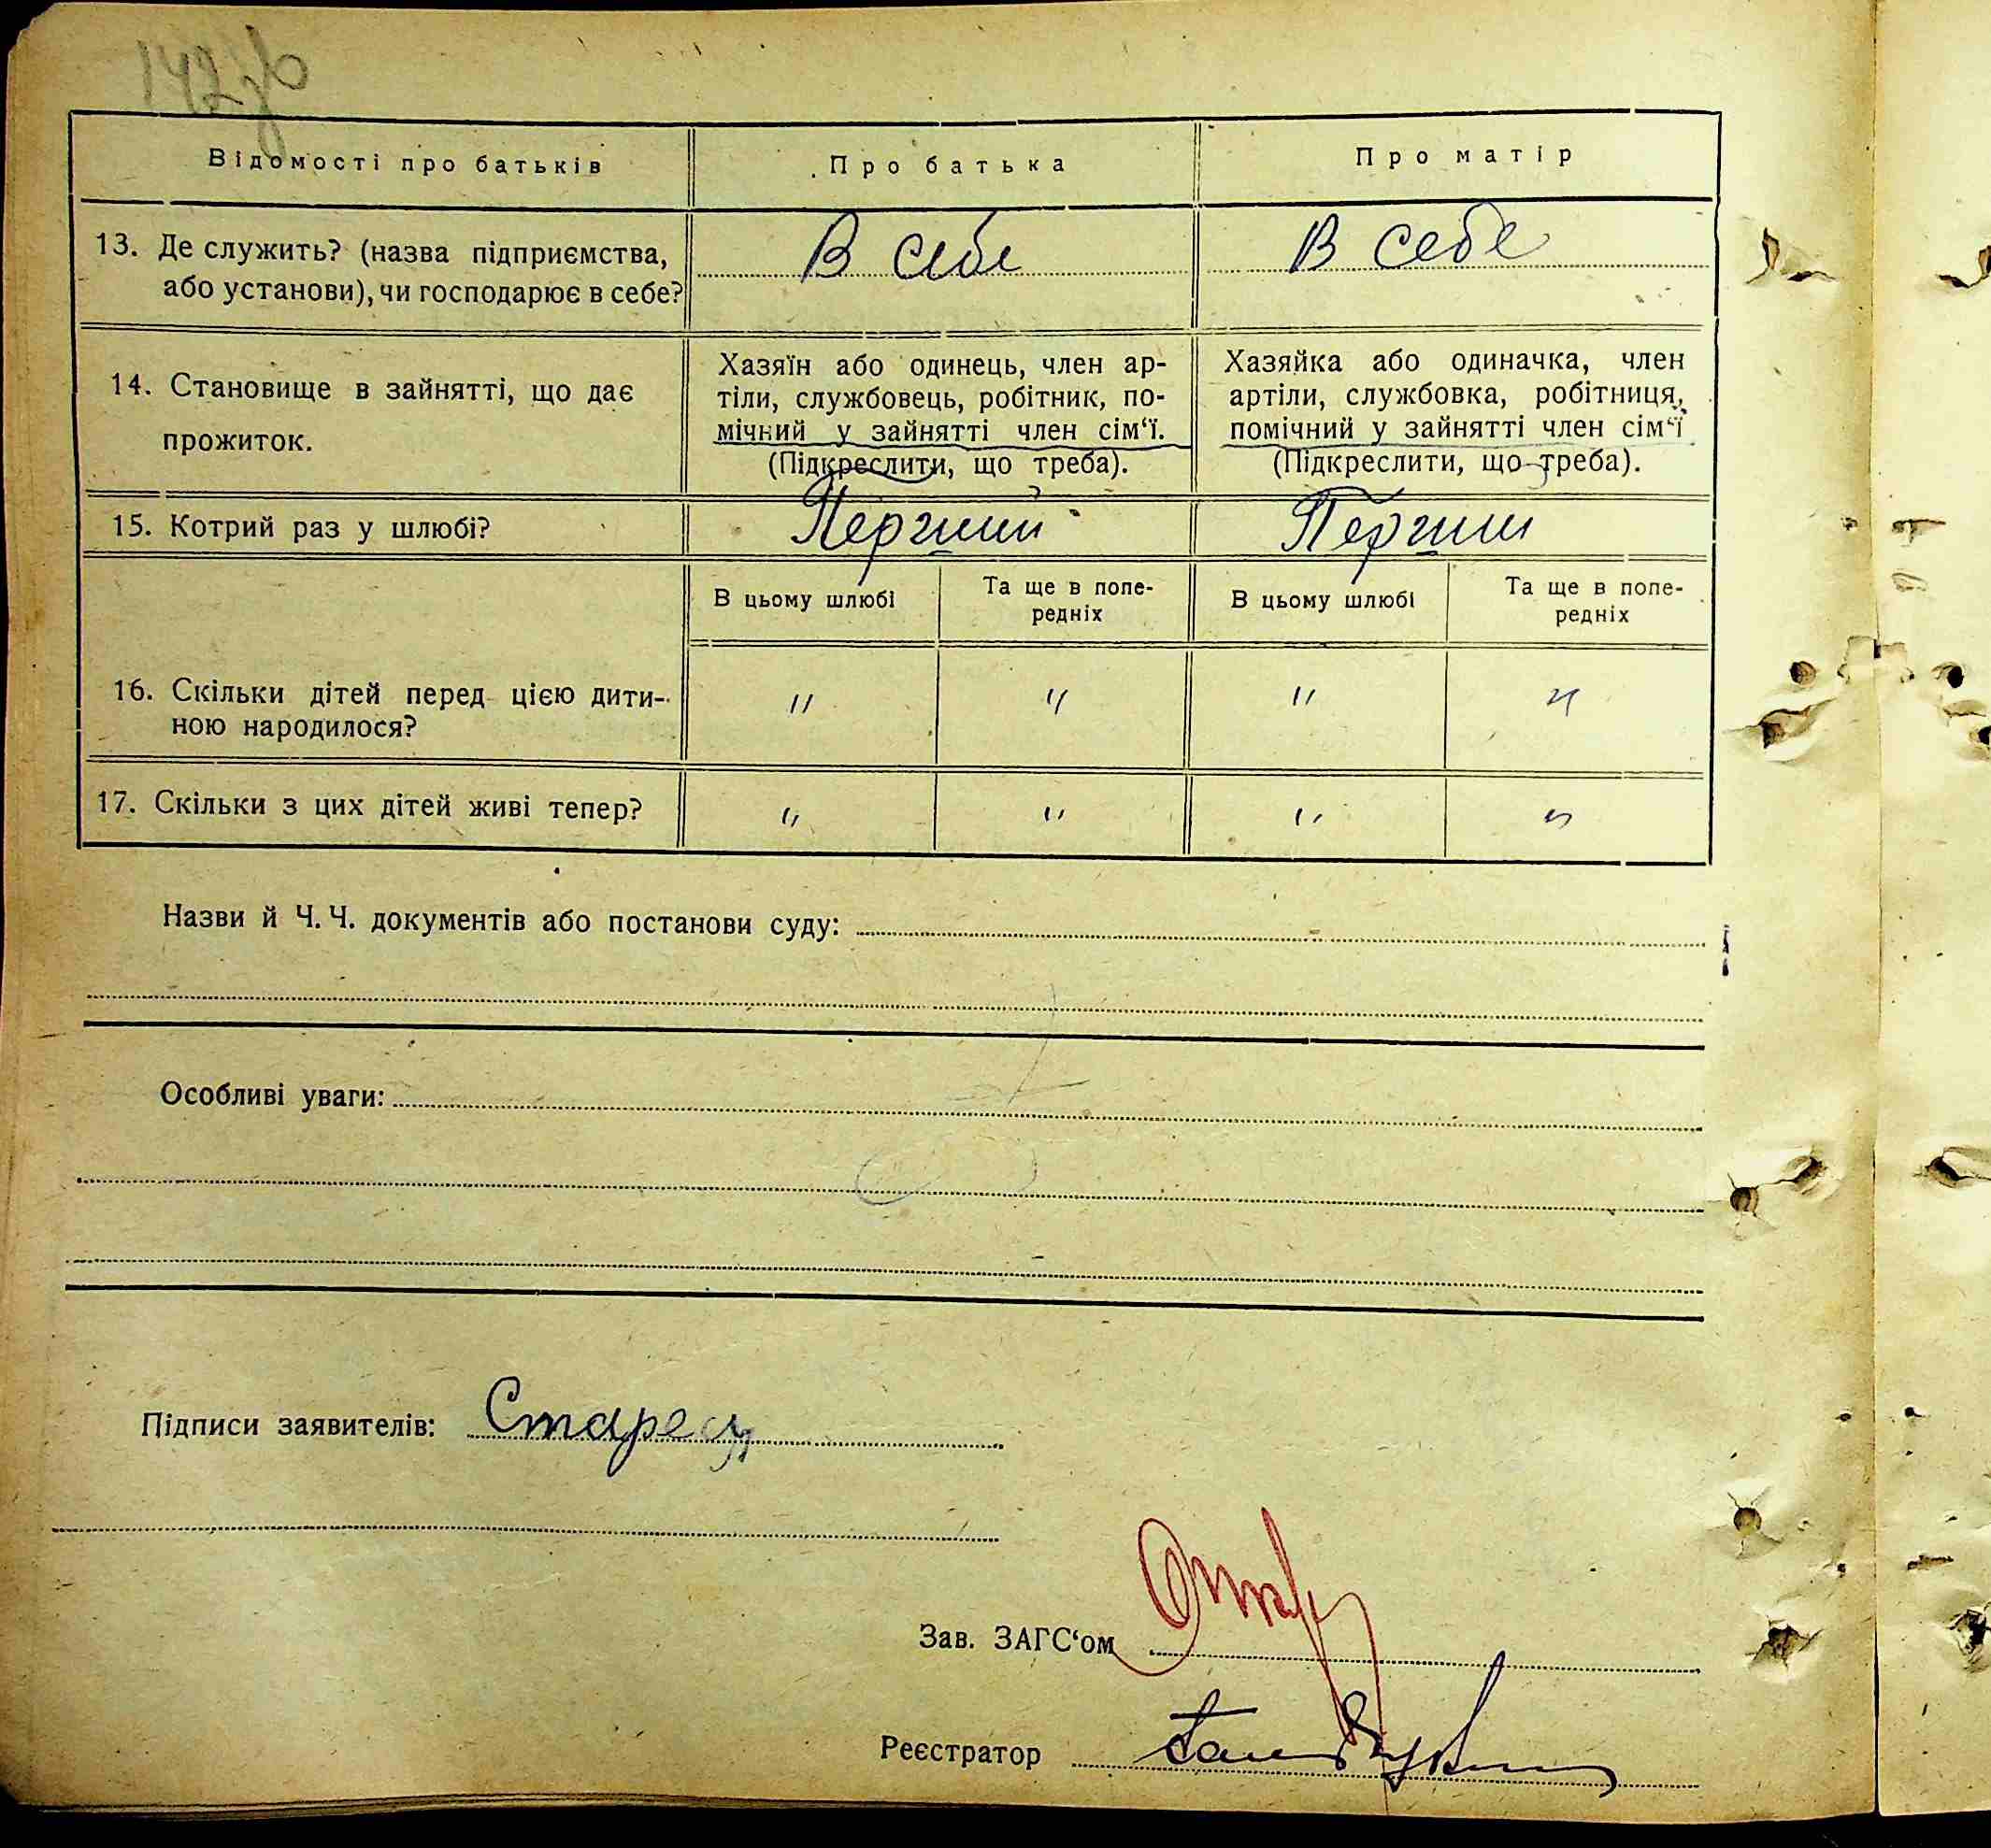 142зв
Відомості про батьків
Про батька
Про матір
13. Де служить? (назва підприємства,
або установи), чи господарює в себе?
В себе
В себе
14. Становище в зайнятті, що дає
прожиток.
Хазяїн або одинець, член ар-
тіли, службовець, робітник, по-
мічний у зайнятті член сім‘ї.
(Підкреслити, що треба).
Хазяйка або одиначка, член
артіли, службовка, робітниця,
помічний у зайнятті член сім‘ї
(Підкреслити, що треба).
15. Котрий раз у шлюбі?
Перший
Перший
В цьому шлюбі
Та ще в попе-
редніх
В цьому шлюбі
Та ще в попе-
редніх
16. Скільки дітей перед цією дити-
ною народилося?
" " " "
17. Скільки з цих дітей живі тепер?
" " " "
Назви й Ч. Ч. документів або постанови суду:
Особливі уваги:
Підписи заявителів: Старец
Зав. ЗАГС‘ом
Реєстратор